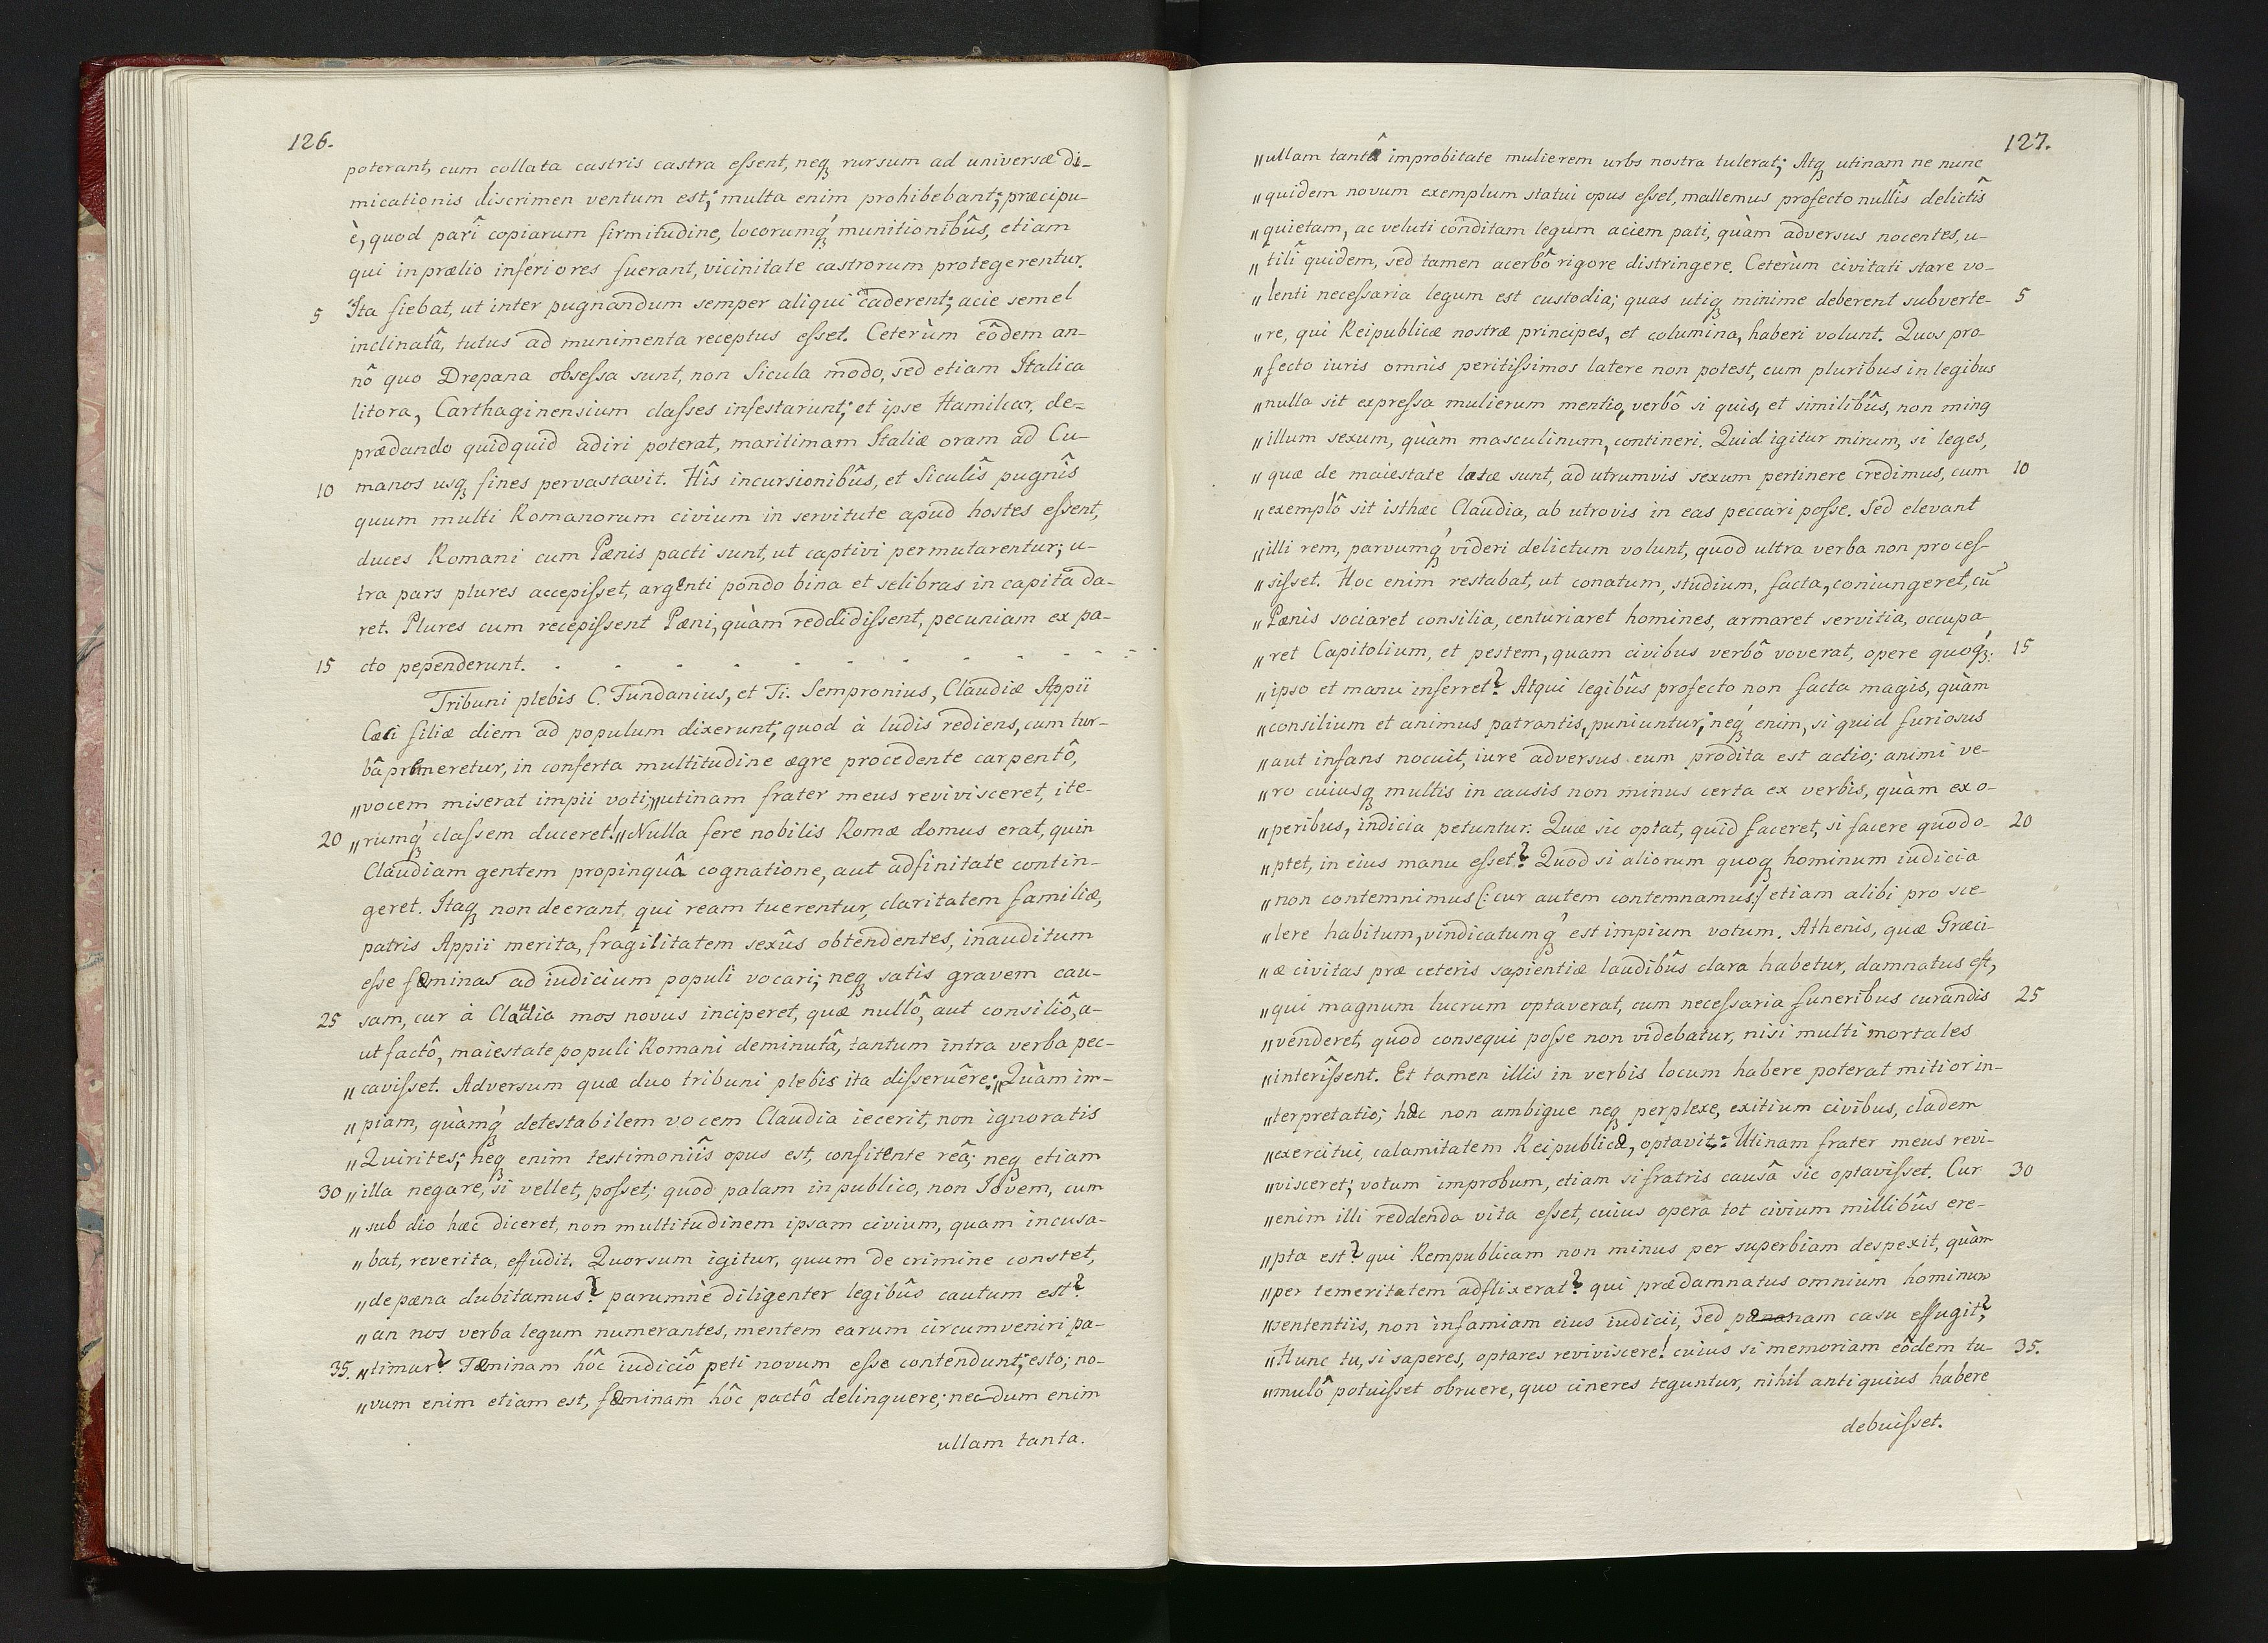 126.
poterant, cum collata castris castra essent, neqꝫ rursum ad universæ di-
micationis discrimen ventum est; multa enim prohibebant; præcipu-
è, quod parî copiarum firmitudine, locorumq́ꝫ munitionibûs, etiam
qui in prælio inferiores fuerant, vicinitate castrorum protegerentur.
5 Ita fiebat, ut inter pugnandum semper aliqui caderent; acie semel
inclinatâ, tutus ad munimenta receptus esset. Ceterùm eôdem an-
nô quo Drepana obsessa sunt, non Sicula modo, sed etiam Italica
litora, Carthaginensium classes infestarunt; et ipse Hamilcar, de-
prædando quidquid adiri poterat, maritimam Italiæ oram ad Cu-
10 manos usqꝫ fines pervastavit. Hîs incursionibûs, et Siculîs pugnîs
quum multi Romanorum civium in servitute apud hostes essent,
duces Romani cum Pœnis pacti sunt, ut captivi permutarentur; u-
tra pars plures accepisset, argenti pondo bina et selibras in capita da-
ret. Plures cum recepissent Pœni, quàm reddidissent, pecuniam ex pa-
15 cto pependerunt. - - - - - - - - - - - -
Tribuni plebis C. Fundanius, et Ti. Sempronius, Claudiæ Appii
Cæci filiæ diem ad populum dixerunt; quod à ludis rediens, cum tur-
bâ premeretur, in conferta multitudine ægre procedente carpentô,
„vocem miserat impii voti; „utinam frater meus revivisceret, ite-
20 „rumq́ꝫ classem duceret! „Nulla fere nobilis Romæ domus erat, quin
Claudiam gentem propinquâ cognatione, aut adfinitate contin-
geret. Itaqꝫ non deerant, qui ream tuerentur, claritatem familiæ,
patris Appii merita, fragilitatem sexûs obtendentes, inauditum
esse fœminas ad iudicium populi vocari; neqꝫ satis gravem cau-
25 sam, cur à Claudia mos novus inciperet, quæ nullô, aut consiliô, a-
ut factô, maiestate populi Romani deminutâ, tantum intra verba pec-
„cavisset. Adversum quæ duo tribuni plebis ita disseruêre: „Quàm im-
„piam, quàmq́ꝫ detestabilem vocem Claudia iecerit, non ignoratis
„Quirites; neqꝫ enim testimoniîs opus est, confitente reâ; neqꝫ etiam
30 „illa negare, si vellet, posset; quod palam in publico, non Iovem, cum
„sub dio hæc diceret, non multitudinem ipsam civium, quam incusa-
„bat, reverita, effudit. Quorsum igitur, quum de crimine constet,
„de pæna dubitamus? parumnè diligenter legibûs cautum est?
„an nos verba legum numerantes, mentem earum circumveniri pa-
35. „timur? Fœminam hôc iudiciô peti novum esse contendunt; esto; no-
„vum enim etiam est, fœminam hôc pactô delinquere; necdum enim
ullam tanta.
127.
„ullam tantâ improbitate mulierem urbs nostra tulerat; Atqꝫ utinam ne nunc
„quidem novum exemplum statui opus esset, mallemus profecto nullîs delictîs
„quietam, ac veluti conditam legum aciem pati, quàm adversus nocentes, u-
„tilî quidem, sed tamen acerbô rigore distringere. Ceterùm civitati stare vo-
„lenti necessaria legum est custodia; quas utiqꝫ minime deberent subverte- 5
„re, qui Reipublicæ nostræ principes, et columina, haberi volunt. Quos pro
„fecto iuris omnis peritissimos latere non potest, cum pluribus in legibus
„nulla sit expressa mulierum mentio, verbô si quis, et similibûs, non ming
„illum sexum, quàm masculinum, contineri. Quid igitur mirum, si leges,
„quæ de maiestate latæ sunt, ad utrumvis sexum pertinere credimus, cum 10
„exemplô sit isthæc Claudia, ab utrovis in eas peccari posse. Sed elevant
„illi rem, parvumq́ꝫ videri delictum volunt, quod ultra verba non proces-
„sisset. Hoc enim restabat, ut conatum, studium, facta, coniungeret, cũ
„Pœnis sociaret consilia, centuriaret homines, armaret servitia, occupa-
„ret Capitolium, et pestem, quam civibus verbô voverat, opere quoq́ꝫ: 15
„ipso et manu inferret? Atqui legibûs profecto non facta magis, quàm
„consilium et animus patrantis, puniuntur; neq́ꝫ enim, si quid furiosus
„aut infans nocuit, iure adversus eum prodita est actio; animi ve-
„ro cuiusqꝫ multis in causis non minus certa ex verbis, quàm ex o-
„peribus, indicia petuntur. Quæ sic optat, quid faceret, si facere quod o- 20
„ptet, in eius manu esset? Quod si aliorum quoqꝫ hominum iudicia
„non contemnimus (: cur autem contemnamus :) etiam alibi pro sce-
„lere habitum, vindicatumq́ꝫ est impium votum. Athenis, quæ Græci-
„æ civitas præ ceteris sapientiæ laudibûs clara habetur, damnatus est,
„qui magnum lucrum optaverat, cum necessaria funeribus curandis 25
„venderet, quod consequi posse non videbatur, nisi multi mortales
„interîssent. Et tamen illis in verbis locum habere poterat mitior in-
„terpretatio; hæc non ambigue neqꝫ perplexe, exitium civibus, cladem
„exercitui, calamitatem Reipublicæ, optavit: Utinam frater meus revi-
„visceret; votum improbum, etiam si fratris causâ sic optavisset. Cur 30
„enim illi reddenda vita esset, cuius operâ tot civium millibûs ere-
„pta est? qui Rempublicam non minus per superbiam despexit, quàm
„per temeritatem adflixerat? qui prædamnatus omnium hominum
„sententiis, non infamiam eius iudicii, sed pœnam casu effugit?
„Hunc tu, si saperes, optares reviviscere! cuius si memoriam eôdem tu- 35.
„mulô potuisset obruere, quo cineres teguntur, nihil antiquius habere
debuisset.